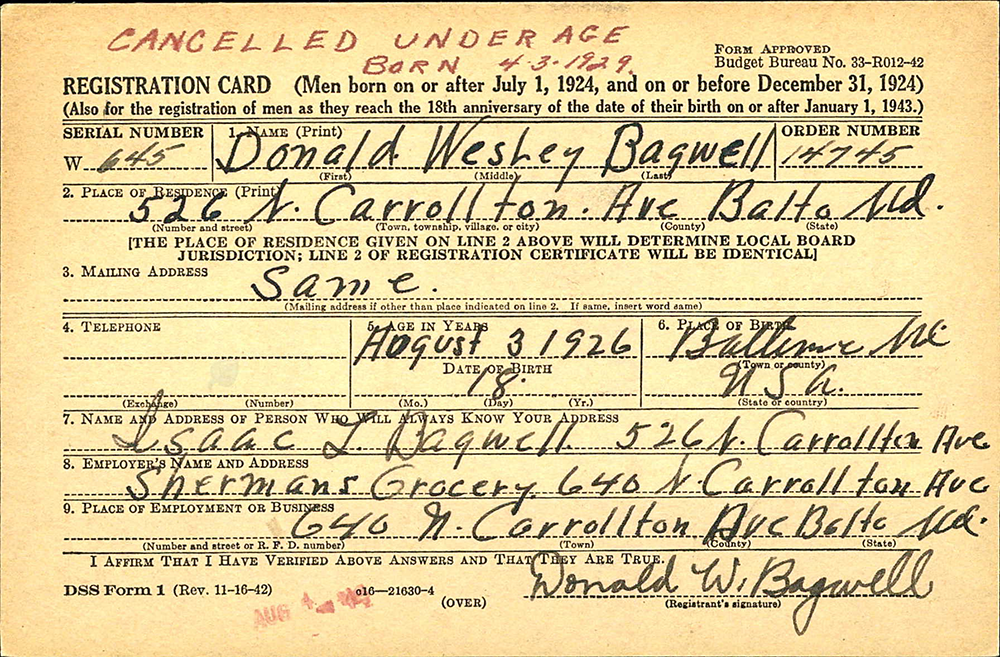 CANCELLED UNDER AGE
BORN 4-3-1929.
FORM APPROVED
Budget Bureau No. 33-R012-42
REGISTRATION CARD (Men born on or after July 1, 1924, and on or before December 31, 1924)
(Also for the registration of men as they reach the 18th anniversary of the date of their birth on or after January 1, 1943.)
SERIAL NUMBER 1. NAME (Print) ORDER NUMBER
W 645 Donald Wesley Bagwell 14745
(First) (Middle) (Last)
2. PLACE OF RESIDENCE (Print)
526 N. Carrollton. Ave Balto Md.
(Number and street) (Town, township, village, or city) (County) (State)
[THE PLACE OF RESIDENCE GIVEN ON LINE 2 ABOVE WILL DETERMINE LOCAL BOARD
JURISDICTION; LINE 2 OF REGISTRATION CERTIFICATE WILL BE IDENTICAL]
3. MAILING ADDRESS
Same.
(Mailing address if other than place indicated on line 2. If same, insert word same)
4. TELEPHONE 5. AGE IN YEARS 6. PLACE OF BIRTH
August 3 1926 Md
(Town or county)
DATE OF BIRTH
18. U.S.A.
(Exchange) (Number) (Mo.) (Day) (Yr.) (State or country)
7. NAME AND ADDRESS OF PERSON WHO WILL ALWAYS KNOW YOUR ADDRESS
Isaac L. Bagwell 526 N. Carrollton Ave
8. EMPLOYER'S NAME AND ADDRESS
Shermans Grocery 640 N. Carrollton Ave
9. PLACE OF EMPLOYMENT OR BUSINESS
640 N. Carrollton Ave Balto Md.
(Number and street or R. F. D. number) (Town) (County) (State)
I AFFIRM THAT I HAVE VERIFIED ABOVE ANSWERS AND THAT THEY ARE TRUE.
DSS Form 1 (Rev. 11-16-42) o16—21630-4 Donald W. Bagwell
AUG (OVER) (Registrant's signature)